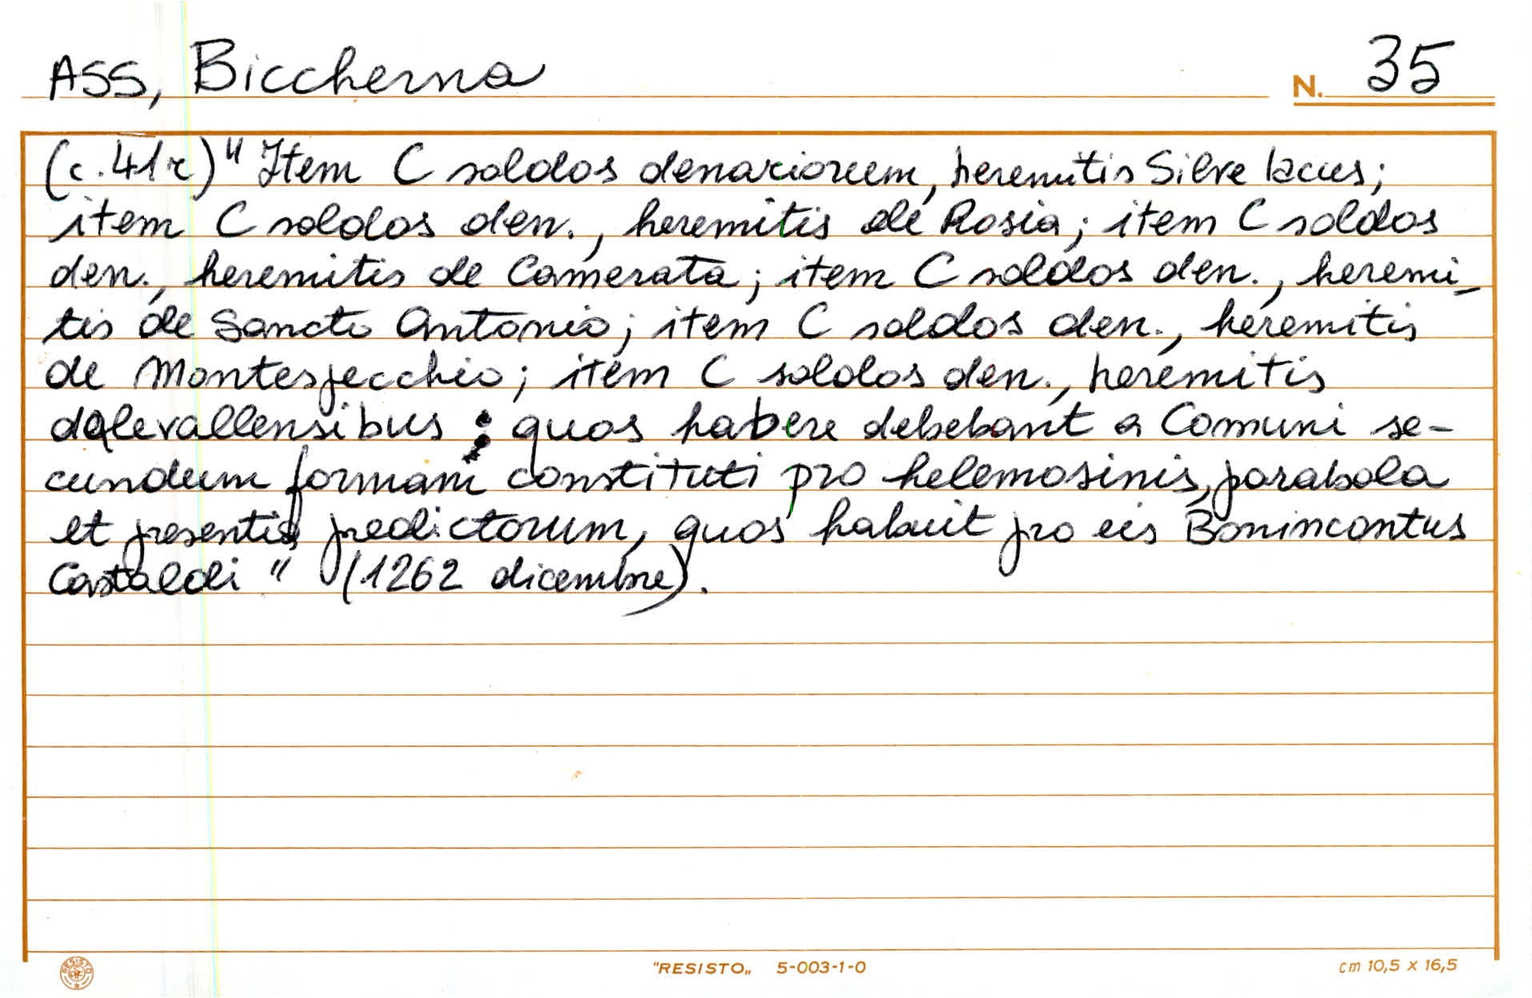 ASS, Biccherna N. 35
(c. 41r) "Item C soldos denariorum, heremitis Silve lacus;
item C soldos den., heremitis de Rosia; item C soldos
den., heremitis de Camerata; item C soldos den., heremi-
tis de Sancto Antonio; item C soldos den., heremitis
de Montespecchio; item C soldos den., heremitis
dalevallensibus; quos habere debebant a Comuni se-
cundum formam constituti pro helemosinis, parabola
et presentia predictorum, quos habuit pro eis Bonincontus
Castaldi" (1262 dicembre).
RESISTO
"RESISTO„ 5-003-1-0
cm 10,5 x 16,5